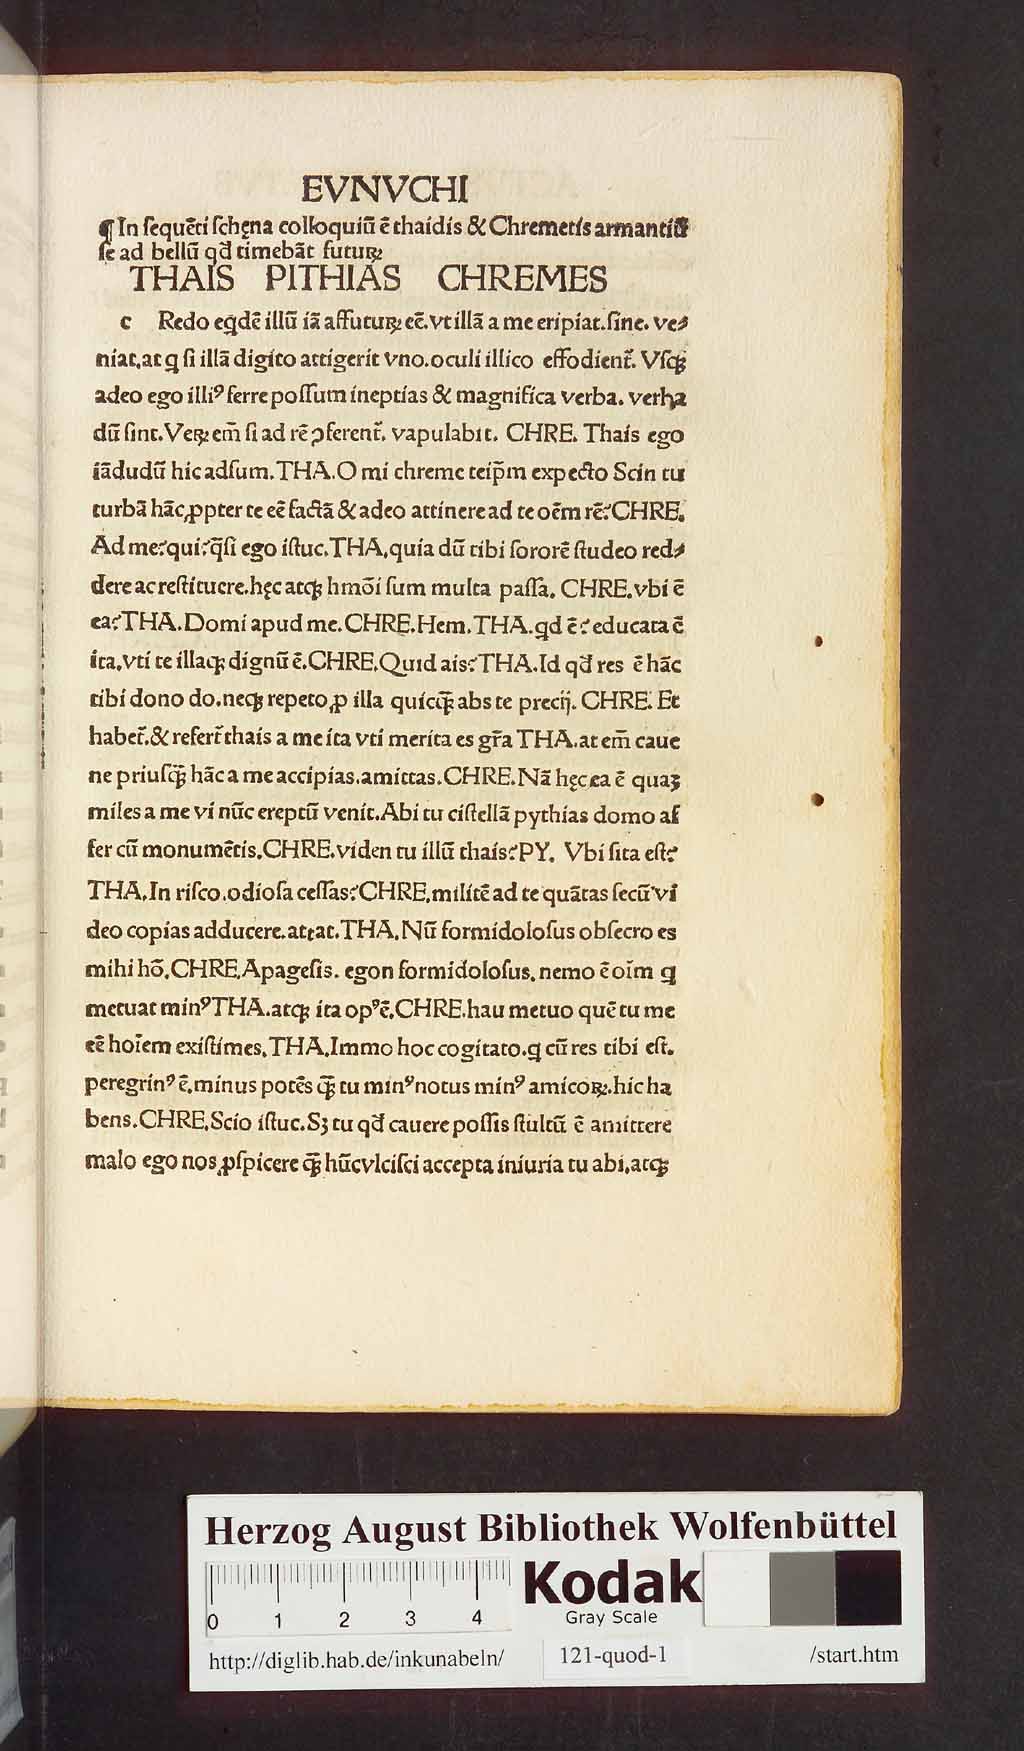 EVNVCHI
¶ In ſequēti ſchęna colloquiū ē thaidis & Chremetis armantiū
ſe ad bellū qđ timebāt futuꝝ
THAIS PITHIAS CHREMES
c Redo eqdē illū iā affutuꝝ eē. vt illā a me eripiat. ſine. ve⸗
niat. at q ſi illā digito attigerit vno. oculi illico effodient̄. Vſqꝫ
adeo ego illiꝰ ferre poſſum ineptias & magnifica verba. verba
dū ſint. Veꝝ em̄ ſi ad rē ꝓferent̄. vapulabit. CHRE. Thais ego
iādudū hic adſum. THA. O mi chreme teip̄m expecto Scin tu
turbā hāc ꝓpter te eē factā & adeo attinere ad te oēm rē? CHRE.
Ad me? qui? q̄ſi ego iſtuc. THA, quia dū tibi ſororē ſtudeo red⸗
dere ac reſtituere. hęc atqꝫ hmōi ſum multa paſſa. CHRE. vbi ē
ea? THA. Domi apud me. CHRE. Hem. THA. qd ē? educata ē
ita, vti te illaqꝫ dignū ē. CHRE. Quid ais? THA. Id qđ res ē hāc
tibi dono do. neqꝫ repeto ꝓ illa quicqꝫ̄ abs te precij. CHRE. Et
habet̄. & refert̄ thais a me ita vti merita es gr̄a THA. at em̄ caue
ne priuſqꝫ̄ hāc a me accipias. amittas. CHRE. Nā hęc ea ē quaꝫ
miles a me vi nūc ereptū venit. Abi tu ciſtellā pythias domo af
fer cū monumētis. CHRE. viden tu illū thais? PY. Vbi ſita eſt?
THA. In riſco. odioſa ceſſas? CHRE, militē ad te quātas ſecū vi
deo copias adducere. attat. THA. Nū formidoloſus obſecro es
mihi hō. CHRE. Apageſis. egon formidoloſus. nemo ē oīm q
metuat minꝰ THA. atqꝫ ita opꝰ ē. CHRE. hau metuo quē tu me
eē hoīem exiſtimes. THA. Immo hoc cogitato. q cū res tibi eſt.
peregrinꝰ ē. minus potēs qꝫ̄ tu minꝰ notus minꝰ amicoꝝ. hic ha
bens. CHRE. Scio iſtuc. Sꝫ tu qđ cauere poſſis ſtultū ē amittere
malo ego nos ꝓſpicere qꝫ̄ hūc vlciſci accepta iniuria tu abi. atqꝫ
Herzog August Bibliothek Wolfenbüttel
0 1 2 3 4
Kodak
Gray Scale
http://diglib.hab.de/inkunabeln/ 121-quod-1 /start.htm